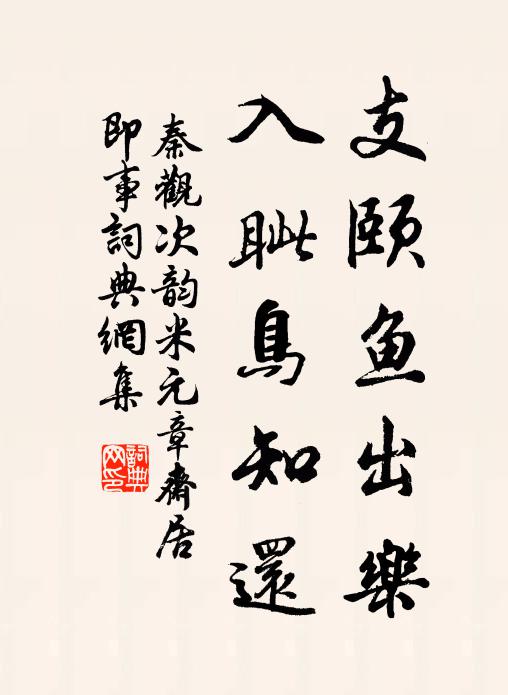 支頤鱼出樂
入眦鳥知還
秦觀次韵米元章齋居
即事詞典網集
詞典网印